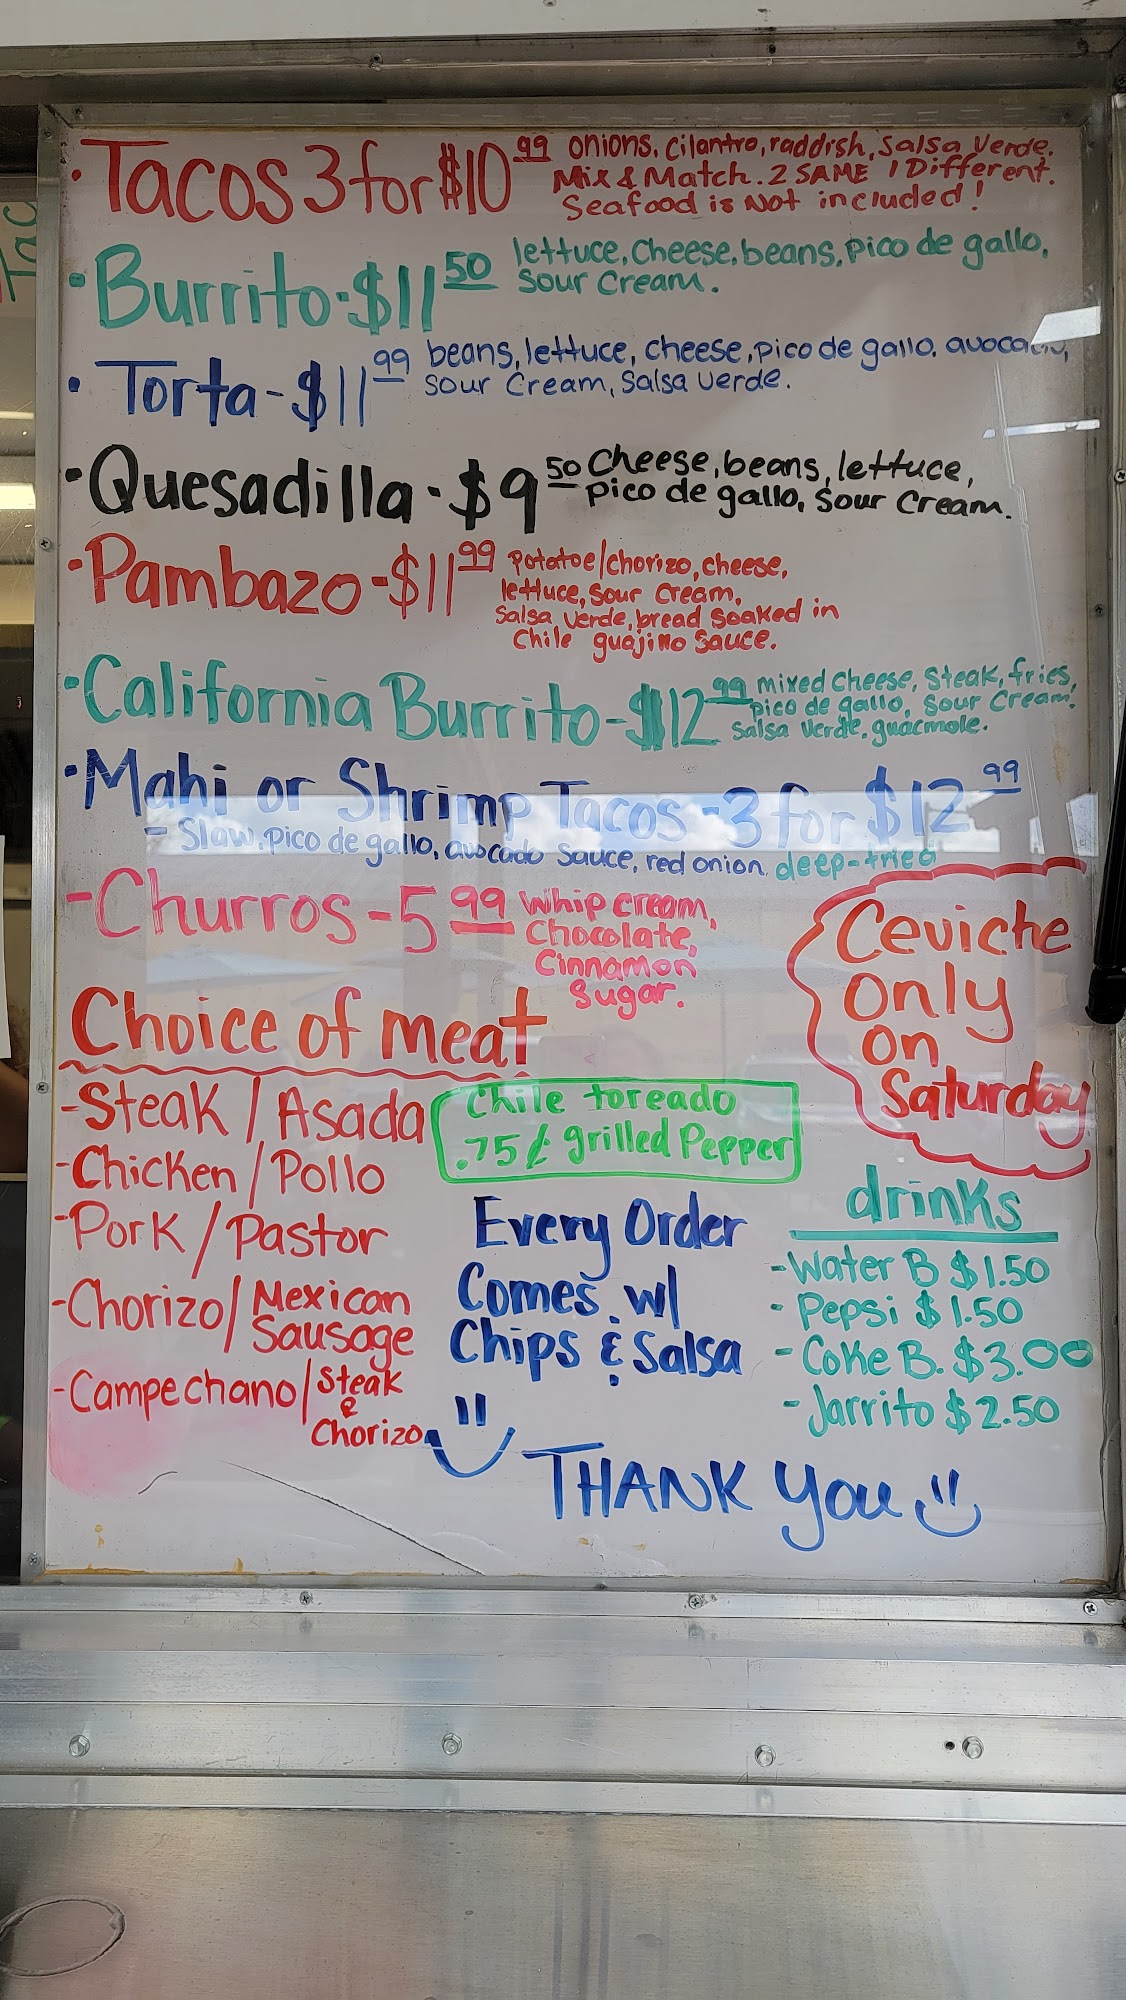 · Tacos 3 for $10.99 onions, cilantro, raddish, Salsa Verde.
Mix & Match. 2 SAME 1 Different.
Seafood is Not included!
· Burrito - $11.50 lettuce, Cheese, beans, Pico de gallo,
Sour Cream.
· Torta - $11.99 beans, lettuce, cheese, pico de gallo, avocado,
Sour Cream, Salsa Verde.
· Quesadilla - $9.50 Cheese, beans, lettuce,
Pico de gallo, Sour Cream.
· Pambazo - $11.99 Potatoe/chorizo, cheese,
lettuce, Sour Cream,
Salsa Verde, bread Soaked in
Chile guajillo Sauce.
· California Burrito - $12.99 mixed Cheese, Steak, fries,
pico de gallo, Sour Cream,
Salsa Verde, guacmole.
· Mahi or Shrimp Tacos - 3 for $12.99
- Slaw, pico de gallo, avocado Sauce, red onion. deep-fried
- Churros - 5.99 Whip cream,
Chocolate,
Cinnamon
Sugar.
Ceviche
Only
on
Saturday
Choice of meat
- Steak / Asada
- Chicken / Pollo
- Pork / Pastor
- Chorizo / Mexican
Sausage
- Campechano / Steak
&
Chorizo
Chile toreado
.75¢ grilled Pepper
Every Order
Comes w/
Chips & Salsa
drinks
- Water B $1.50
· Pepsi $1.50
- Coke B. $3.00
- Jarrito $2.50
THANK you